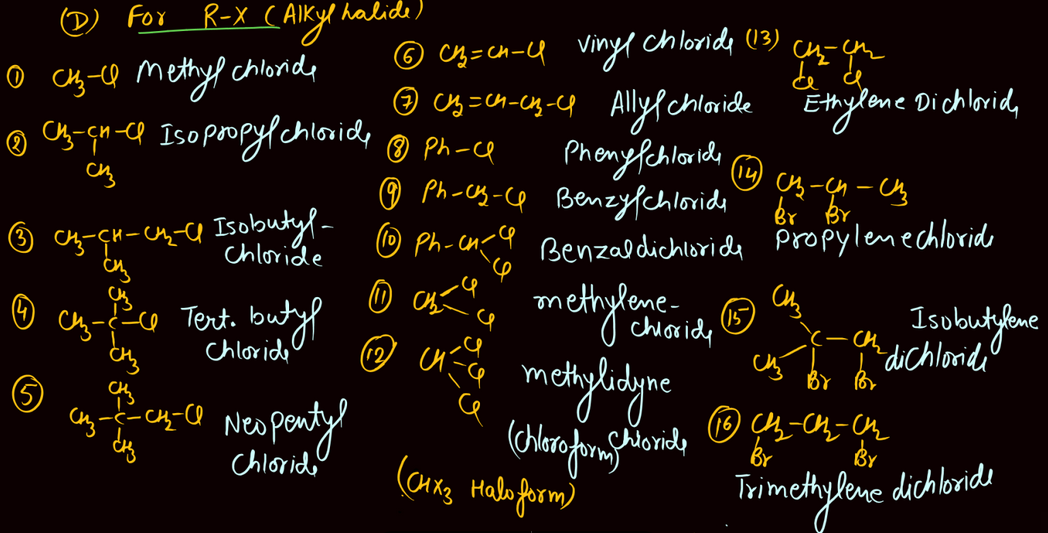 (D) For R-X (Alkyl halide)
① CH3-Cl Methyl chloride
② CH3-CH-Cl Isopropyl chloride
CH3
③ CH3-CH-CH2-Cl Isobutyl-
CH3 Chloride
④ CH3
CH3-C-Cl Tert. butyl
CH3 Chloride
⑤ CH3
CH3-C-CH2-Cl Neopentyl
CH3 Chloride
⑥ CH2=CH-Cl Vinyl chloride
⑦ CH2=CH-CH2-Cl Allyl chloride
⑧ Ph-Cl Phenylchloride
⑨ Ph-CH2-Cl Benzylchloride
⑩ Ph-CH Cl
Cl Benzaldichloride
⑪ CH2 Cl
Cl methylene-
chloride
⑫ CH Cl
Cl
Cl methylidyne
(chloroform) chloride
(CHX3 Haloform)
(13) CH2-CH2
Cl Cl
Ethylene Dichlorid
⑭ CH2-CH-CH3
Br Br
Propylene chloride
⑮ CH3
C-CH2 Isobutylene
CH3 dichloride
Br Br
⑯ CH2-CH2-CH2
Br Br
Trimethylene dichloride